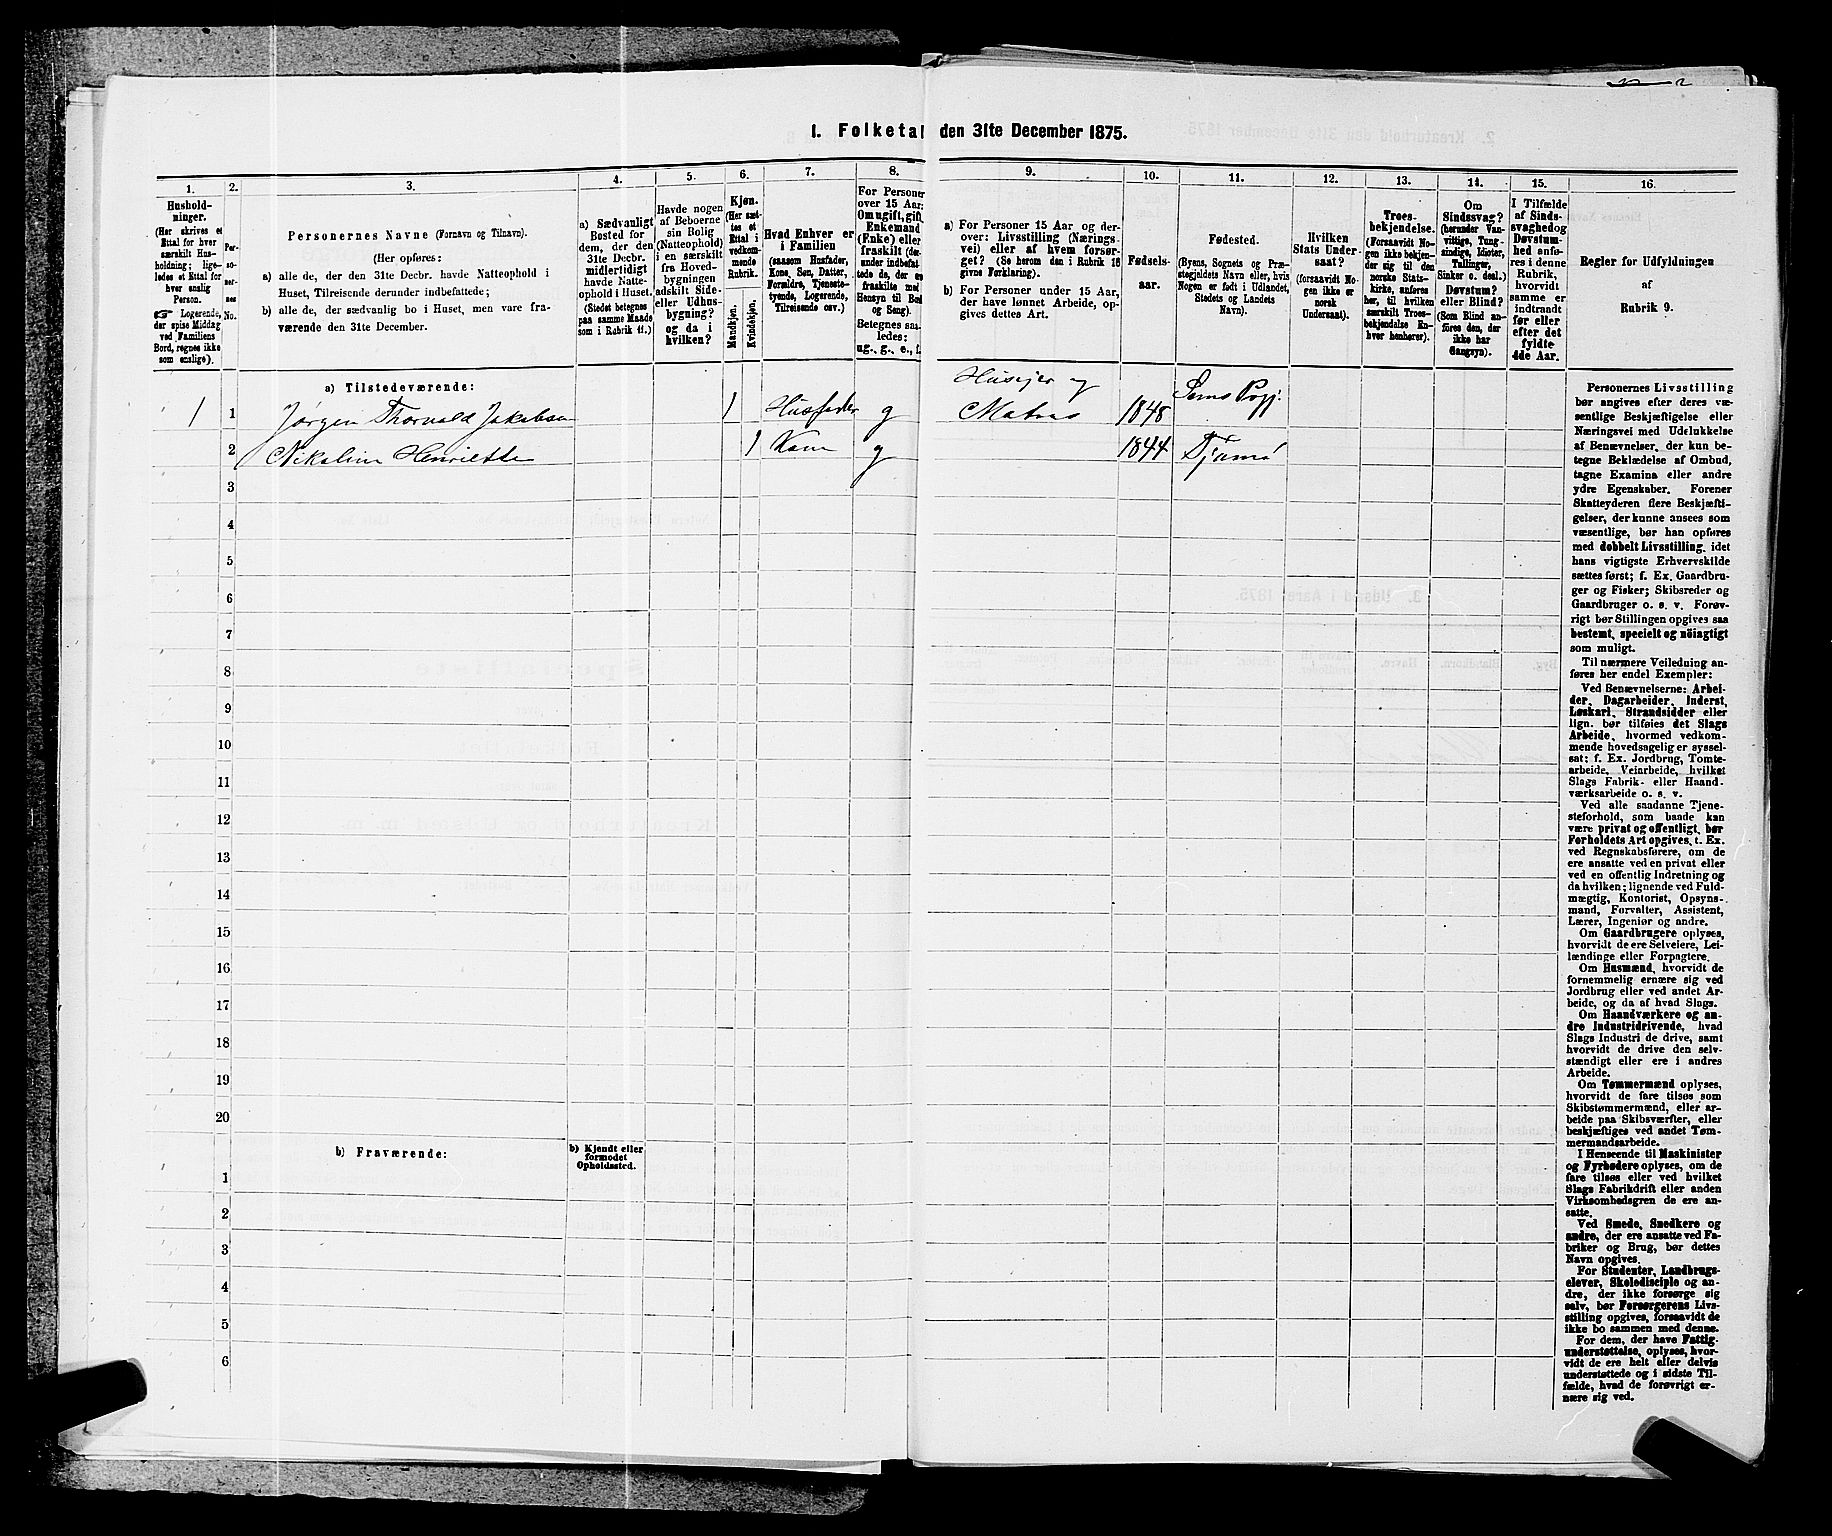 1. Folketal den 31te December 1875.
1.
2.
3.
4.
5.
6.
7.
8.
9.
10.
11.
12.
13.
14.
15.
16.
Hushold-
ninger.
(Her skrives et
Ettal for hver
særskilt Hus-
holdning; lige-
ledes et Ettal for
hver enslig
Person.
☞ Logerende,
der spise Middag
ved Familiens
Bord, regnes ikke
som enslige).
Per-
so-
ner-
nes
No.
Personernes Navne (Fornavn og Tilnavn).
(Her opføres:
a) alle de, der den 31te Decbr. havde Natteophold i
Huset, Tilreisende derunder indbefattede;
b) alle de, der sædvanlig bo i Huset, men vare fra-
værende den 31te December.
a) Sædvanligt
Bosted for
dem, der den
31te Decbr.
midlertidigt
havde Natte-
ophold i Huset.
(Stedet betegnes
paa samme Maade
som i Rubrik 11.)
Havde nogen
af Beboerne
sin Bolig
(Natteophold)
i en særskilt
fra Hoved-
bygningen
adskilt Side-
eller Udhus-
bygning?
og da i
hvilken?
Kjøn.
(Her sæt-
tes et
Ettal i
vedkom-
mende
Rubrik.
Mandkjøn.
Kvindekjøn.
Hvad Enhver er
i Familien
(saasom Husfader,
Kone, Søn, Datter,
Forældre, Tjeneste-
tyende, Logerende,
Tilreisende osv.)
For Personer
over 15 Aar:
Om ugift, gift,
Enkemand
(Enke) eller
fraskilt (der-
under indbefat-
tede de, der ere
fraskilte med
Hensyn til Bord
og Seng).
Betegnes saa-
ledes:
ug., g., e., f.
a) For Personer 15 Aar og der-
over: Livsstilling (Nærings-
vei) eller af hvem forsør-
get? (Se herom den i Rubrik 16
givne Forklaring).
b) For Personer under 15 Aar,
der have lønnet Arbeide, op-
gives dettes Art.
Fødsels-
aar.
Fødested.
(Byens, Sognets og Præ-
stegjeldets Navn eller, hvis
Nogen er født i Udlandet,
Stedets og Landets
Navn).
Hvilken
Stats Under-
saat?
(forsaavidt No-
gen ikke er
norsk
Undersaat).
Troes-
bekjendelse.
(Forsaavidt No-
gen ikke bekjen-
der sig til den
norske Stats-
kirke, anføres
her, til hvilken
særskilt Troes-
bekjendelse En-
hver henhører).
Om
Sindssvag?
(herunder Van-
vittige, Tung-
sindige, Idioter,
Tullinger,
Sinker o. desl.)
Døvstum?
eller Blind?
(Som Blind an-
føres den, der
ikke har
Gangsyn).
I Tilfælde
af Sinds-
svaghed og
Døvstum-
hed anfø-
res i denne
Rubrik,
hvorvidt
samme er
indtraadt
før eller
efter det
fyldte
4de Aar.
Regler for Udfyldningen
af
Rubrik 9.
a) Tilstedeværende:
1 1 Jørgen Thorvald Jakobsen 1 Husfader g Huseier og
Matros 1848 Sems Prgj.
2 Nikoline Henriette 1 Kone g 1844 Tjømø
3
4
5
6
7
8
9
10
11
12
13
14
15
16
17
18
19
20
b) Fraværende:
b) Kjendt eller
formodet
Opholdssted.
1
2
3
4
5
6
Personernes Livsstilling
bør angives efter deres væ-
sentlige Beskjæftigelse eller
Næringsvei med Udelukkelse
af Benævnelser, der kun be-
tegne Beklædelse af Ombud,
tagne Examina eller andre
ydre Egenskaber. Forener
Skatteyderen flere Beskjæfti-
gelser, der kunne ansees som
væsentlige, bør han opføres
med dobbelt Livsstilling, idet
hans vigtigste Erhvervskilde
sættes først; f. Ex. Gaardbru-
ger og Fisker; Skibsreder og
Gaardbruger o. s. v. Forøv-
rigt bør Stillingen opgives saa
bestemt, specielt og nöiagtigt
som muligt.
Til nærmere Veiledning an-
føres her endel Exempler:
Ved Benævnelserne: Arbei-
der, Dagarbeider, Inderst,
Løskarl, Strandsidder eller
lign. bør tilføies det Slags
Arbeide, hvormed vedkom-
mende hovedsagelig er syssel-
sat; f. Ex. Jordbrug, Tomte-
arbeide, Veiarbeide, hvilket
Slags Fabrik- eller Haand-
værksarbeide o. s. v.
Ved alle saadanne Tjene-
steforhold, som baade kan
være privat og offentligt, bør
Forholdets Art opgives, t. Ex.
ved Regnskabsførere, om de
ere ansatte ved en privat eller
ved en offentlig Indretning og
da hvilken; lignende ved Fuld-
mægtig, Kontorist, Opsyns-
mand, Forvalter, Assistent,
Lærer, Ingeniør og andre.
Om Gaardbrugere oplyses,
hvorvidt de ere Selveiere, Lei-
lændinge eller Forpagtere.
Om Husmænd, hvorvidt de
fornemmelig ernære sig ved
Jordbrug eller ved andet Ar-
beide, og da af hvad Slags.
Om Haandværkere og an-
dre Industridrivende, hvad
Slags Industri de drive, samt
hvorvidt de drive den selv-
stændigt eller ere i andres
Arbeide.
Om Tømmermænd oplyses,
hvorvidt de fare tilsøs som
Skibstømmermænd, eller ar-
beide paa Skibsværfter, eller
beskjæftiges ved andet Tøm-
mermandsarbeide.
I Henseende til Maskinister
og Fyrbødere oplyses, om de
fare tilsøs eller ved hvilket
Slags Fabrikdrift eller anden
Virksomhedsgren de ere an-
satte.
Ved Smede, Snedkere og
andre, der ere ansatte ved Fa-
briker og Brug, bør dettes
Navn opgives.
For Studenter, Landbrugs-
elever, Skoledisciple og an-
dre, der ikke forsørge sig
selv, bør Forsørgerens Livs-
stilling opgives, forsaavidt de
ikke bo sammen med denne.
For dem, der have Fattig-
understøttelse, oplyses, hvor-
vidt de ere helt eller delvis
understøttede og i sidste Til-
fælde, hvad de forøvrigt er-
nære sig ved.